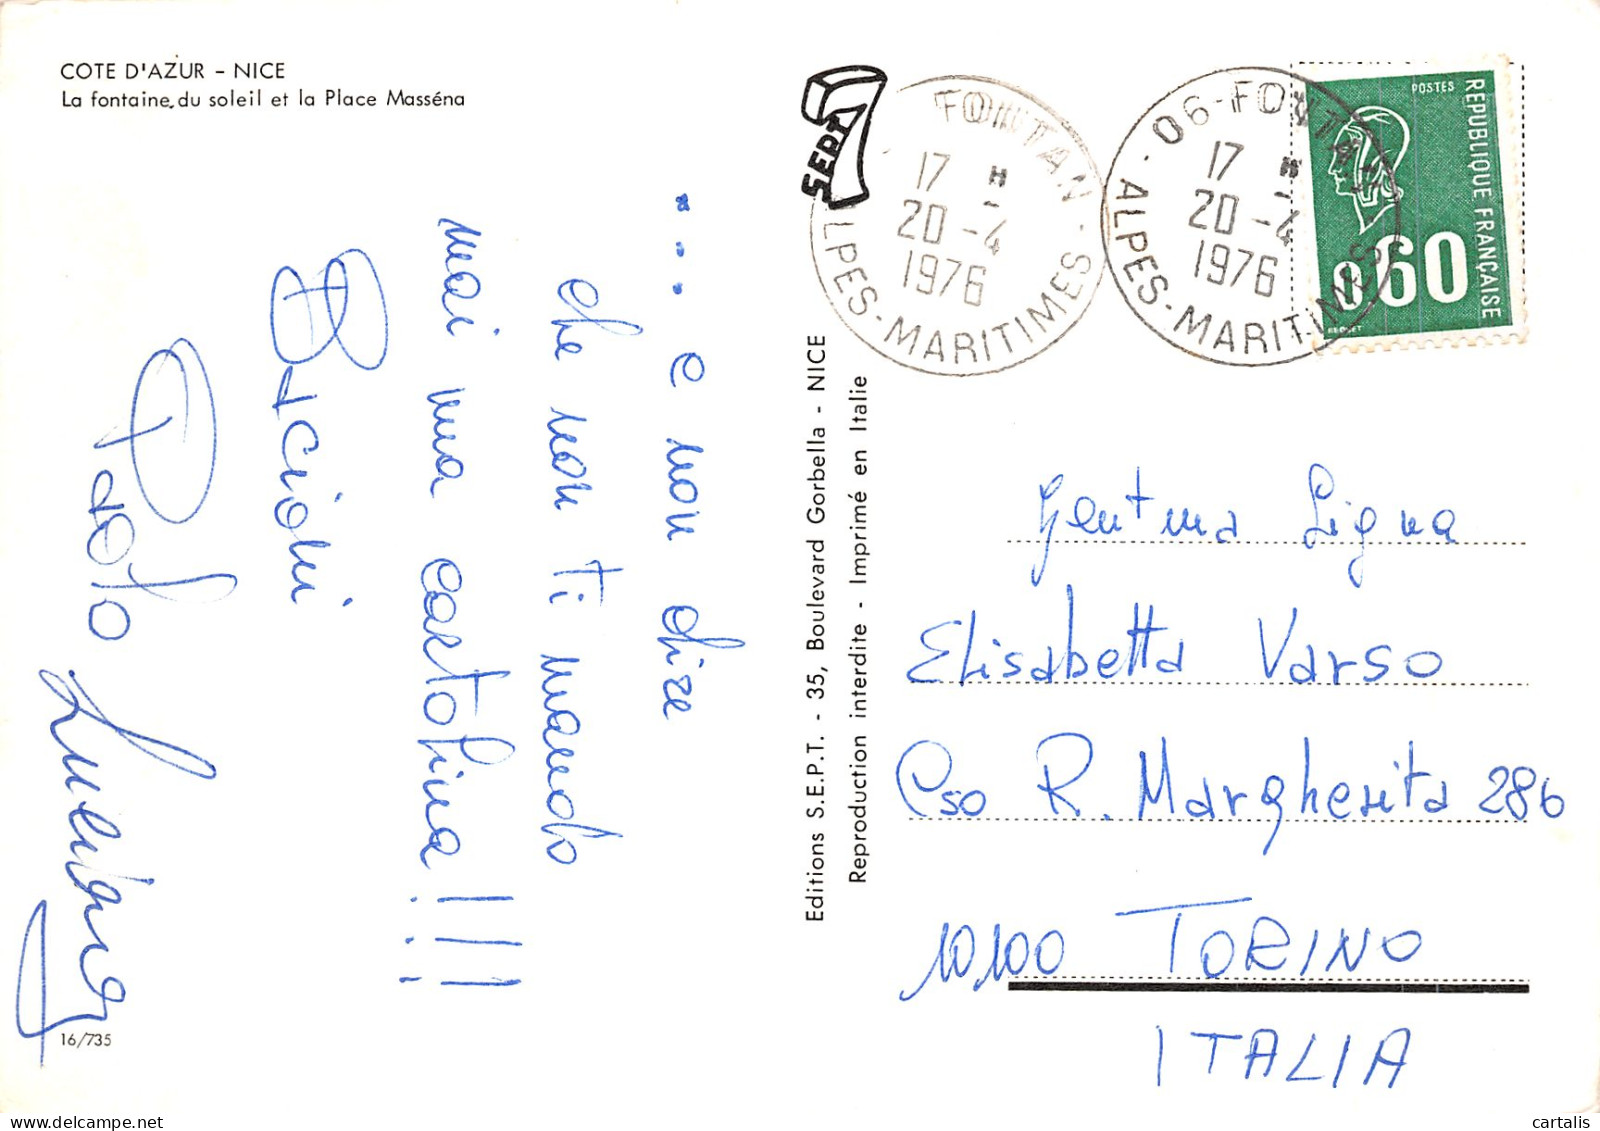 COTE D'AZUR - NICE
La fontaine du soleil et la Place Masséna
... e non dire
che non ti mando
mai una cartolina!!!
Bacioni
Paolo
Luciana
16/735
Editions S.E.P.T. - 35, Boulevard Gorbella - NICE
Reproduction interdite - Imprimé en Italie
SEPT
FONTAN
17 H
20 - 4
1976
ALPES-MARITIMES
06-FONTAN
17 H
20 - 4
1976
ALPES-MARITIMES
POSTES
REPUBLIQUE FRANÇAISE
0,60
BEQUET
Gent.ma Sig.na
Elisabetta Varso
C.so R. Margherita 286
10100 TORINO
ITALIA
cartalis